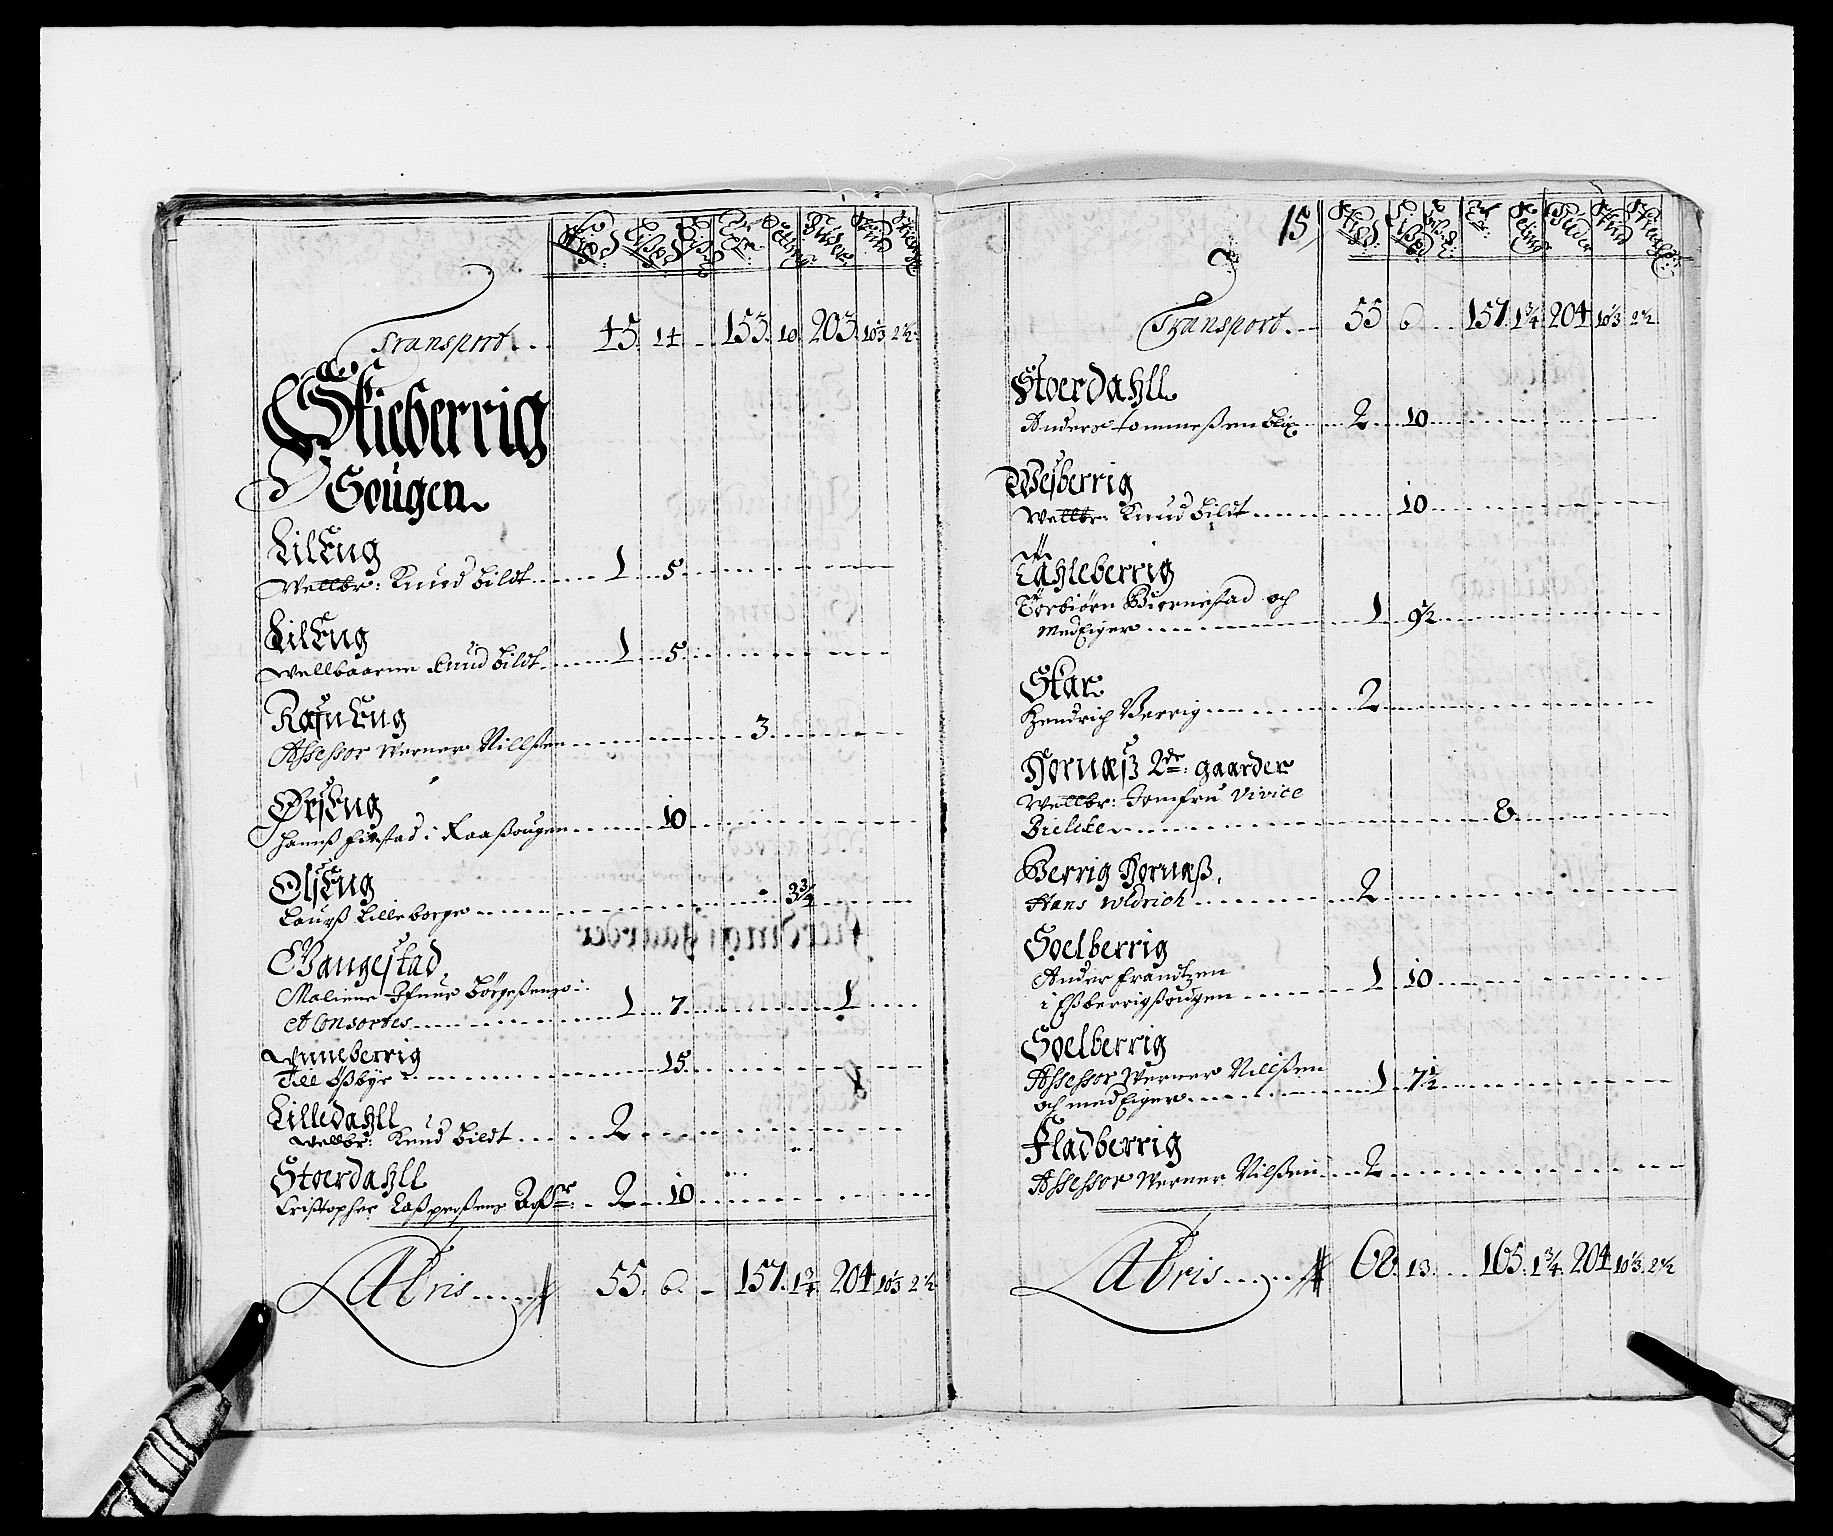 Transport... 45. 14 - 153. 10. 203. 10⅓ 2½
Skieberrig
Sougen
LilEng
Wellbr: Knud Bildt 1 5
LilEng
Wellbaarne Knud Bildt 1 5
RafnEng
Assessor Werner Nillsen 3
ØrsEng
i Raasougen 10
OlsEng
Laurs Lilleborge 3¾
Vangestad
Maliene Børgesens
et Consortes 1 7 1
Unneberrig
Till Øssbye 15
Lilledahll
Wellbr: Knud Bildt 2
Stoerdahll
Cristopher 2 10
Labris 55. 6. - 157. 1¾ 204 10⅓ 2½
15
Transport 55 6 157. 1¾ 204 10⅓ 2½
Stoerdahll
Anders Tommesen Blix 2 10
Wesberrig
Wellbr: Knud Bildt 10
Tahleberrig
Torbiørn Biørnestad och
medEiger 1 9½
Skar
Hendrich Berrig 2
Hornæss 2de: gaarder
Wellbr: Jomfru Vivice
Bielcke 8
Berrig Hornæss
Hans Woldrich 2
Soelberrig
Ander Frandtzen
i Essberrigsougen 1 10
Soelberrig
Assessor Werner Nilssen
och medEiger 1 7½
Fladberrig
Assessor Werner Nilssen 2
Labris 68. 13. 165. 1¾. 204 10⅓. 2½